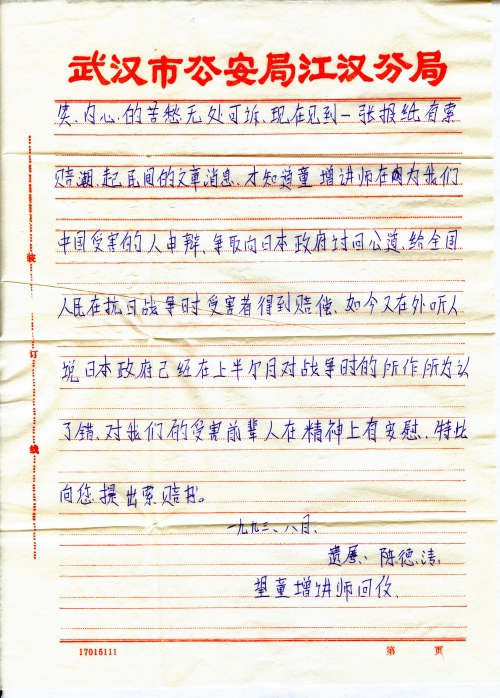 武汉市公安局江汉分局
内心的苦愁无处可诉、现在见到一张报纸有索
赔潮、起民间的文章消息、才知道童增讲师在为我们
中国受害的人申辩、争取向日本政府讨回公道、给全国
人民在抗日战争时受害者得到赔偿、如今又在外听人
说日本政府已经在上半个月对战争时的所作所为认
了错、对我们的受害前辈人在精神上有安慰、特此
向您提出索赔书。
一九九三、八月、
遗属、陈德
望童增讲师回
装
订
线
17015111
第 页